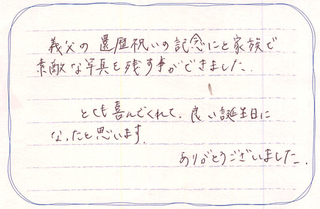 義父の還暦祝いの記念にと家族で
素敵な写真を残す事ができました。
とても喜んでくれて、良い誕生日に
なったと思います。
ありがとうございました。